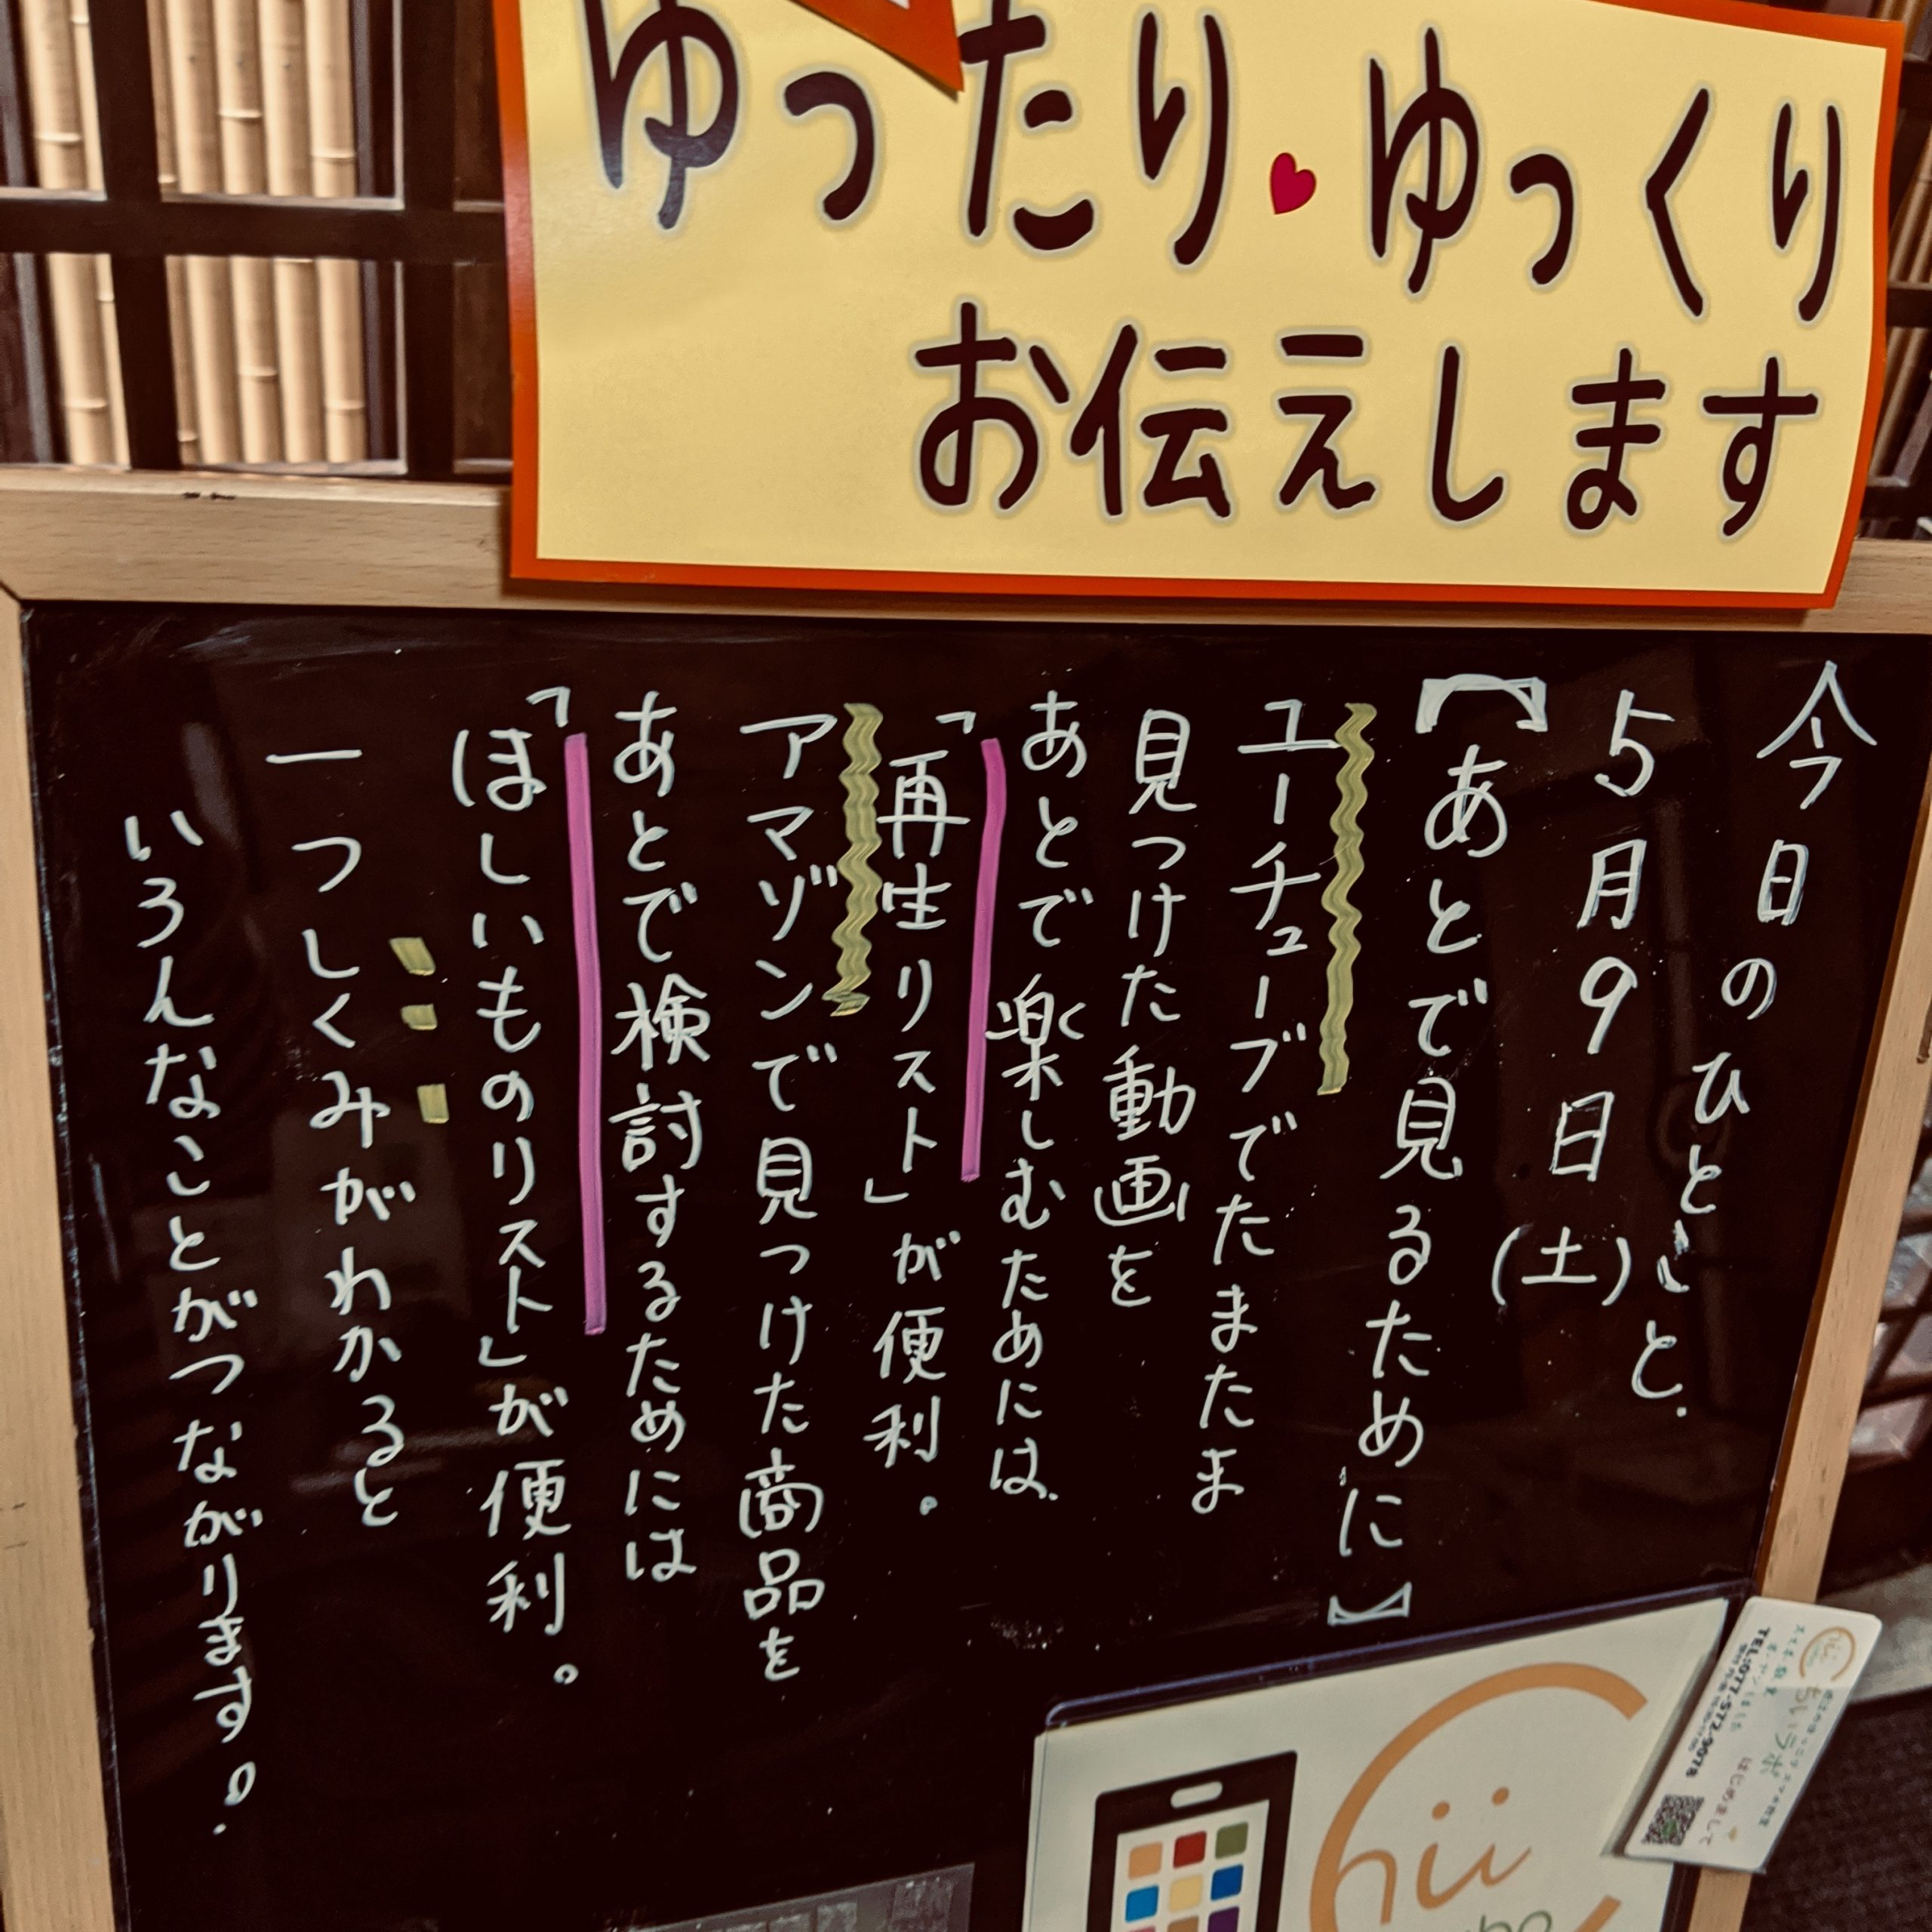 ゆったり♥ゆっくり
お伝えします
今日のひとこと.
5月9日(土)
【あとで見るために】
ユーチューブでたまたま
見つけた動画を
あとで楽しむためには、
「再生リスト」が便利。
アマゾンで見つけた商品を
あとで検討するためには
「ほしいものリスト」が便利。
一つしくみがわかると
いろんなことがつながります。
hii
ちいラボ
はじめまして
TEL:077-572-9078